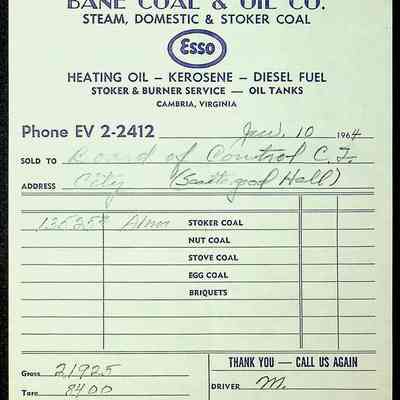 BANE COAL & OIL CO.
STEAM, DOMESTIC & STOKER COAL
Esso
HEATING OIL — KEROSENE — DIESEL FUEL
STOKER & BURNER SERVICE — OIL TANKS
CAMBRIA, VIRGINIA
Phone EV 2-2412 Jan. 10 1964
SOLD TO Board of Control C. F.
ADDRESS City (Scattergood Hall)
STOKER COAL
NUT COAL
STOVE COAL
EGG COAL
BRIQUETS
Gross 21925
Tare 8400
THANK YOU — CALL US AGAIN
DRIVER M.